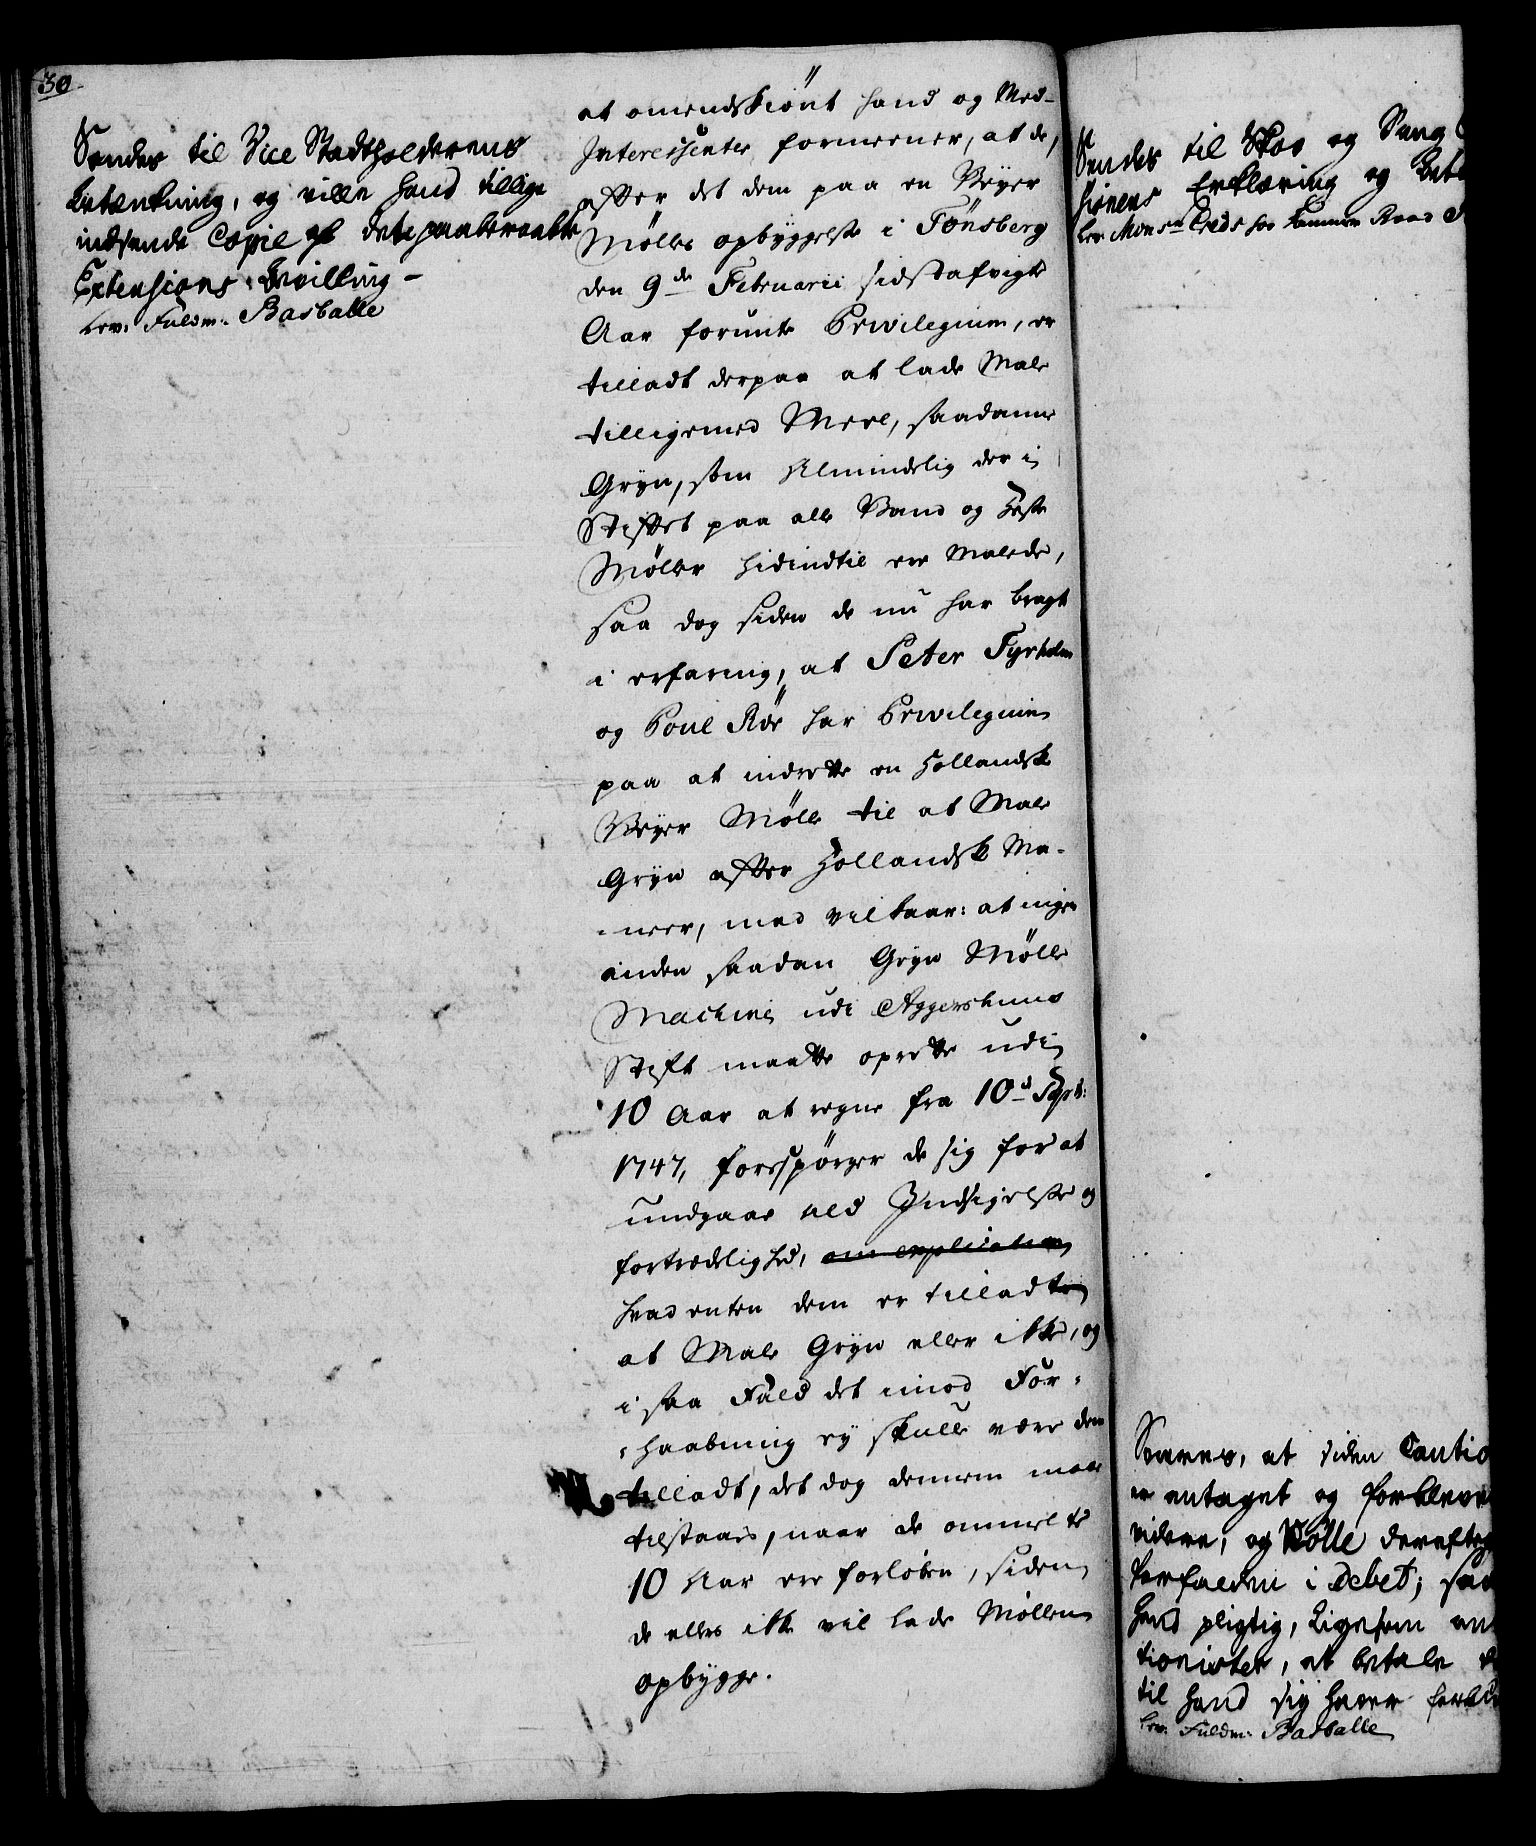 30
Sendes til Vice Stadtholderens
betænkning, og ville hand tillige
indsende Copie af det paaberaabte
Extensions Bevilling -
lev. Fuldm. Basballe
at omendskiønt hand og Med-
Interessenter formeener, at de,
efter det dem paa en Veyer
Mølles opbyggelse i Tønsberg
den 9de Februarii sidstafvigte
Aar forunte Privilegium, er
tilladt derpaa at lade Male
tilligemed Meel, saadanne
Gryn, som Almindelig der i
Stiftet paa alle Vand og Heste
Møller hidindtil ere Malede,
saa dog siden de nu har bragt
i erfaring, at Peter Tyrholm
og Poul Röe har Privilegium
paa at indrette en Hollandsk
Veyer Mølle til at Male
Gryn efter Hollandsk Ma-
-neer, med vilkaar: at ingen
anden saadan Gryn Mølle
Machine udi Aggershuus
Stift maatte oprette udi
10 Aar at regne fra 10de Sept:
1747, forespörger de sig for at
undgaae all Indsigelse og
fortrædelighed, om explication
hvad enten dem er tilladt
at Male Gryn eller ikke, og
i saa Fald det imod For-
-haabning ey skulle være dem
tilladt, det dog dennem maae
tilstaaes, naar de ommelte
10 Aar ere forløben, siden
de ellers ikke vil lade Møllen
opbygge.
Sendes til Skov og Saug
sionens Erklæring og Bet
lev. Mons. Creds for Kammer Raad
Svares, at siden Cautio
er antaget og forbleve
videre, og Bölle derefter
forfalden i Debet; saa
hand pligtig, Ligesom an
tionister, at betale
til hand sig haver forbu
lev. Fuldm. Basballe